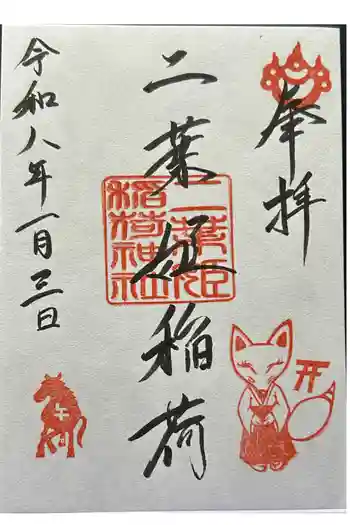 奉拝
二葉姫稲荷
二葉姫
稲荷神社
令和八年一月三日
午